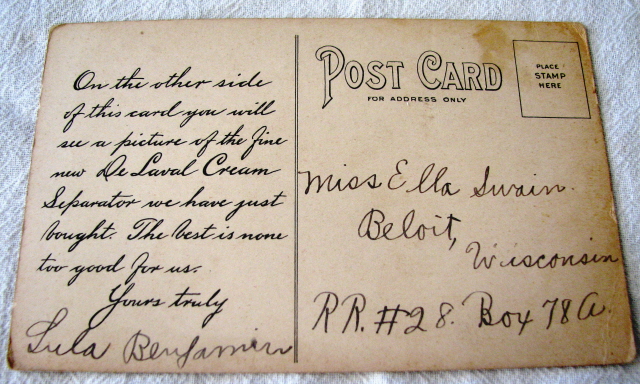 On the other side
of this card you will
see a picture of the fine
new De Laval Cream
Separator we have just
bought. The best is none
too good for us.
Yours truly
Lula Benjamin
POST CARD
FOR ADDRESS ONLY
PLACE
STAMP
HERE
Miss Ella Swain.
Beloit,
Wisconsin
RR. #28. Box 78A